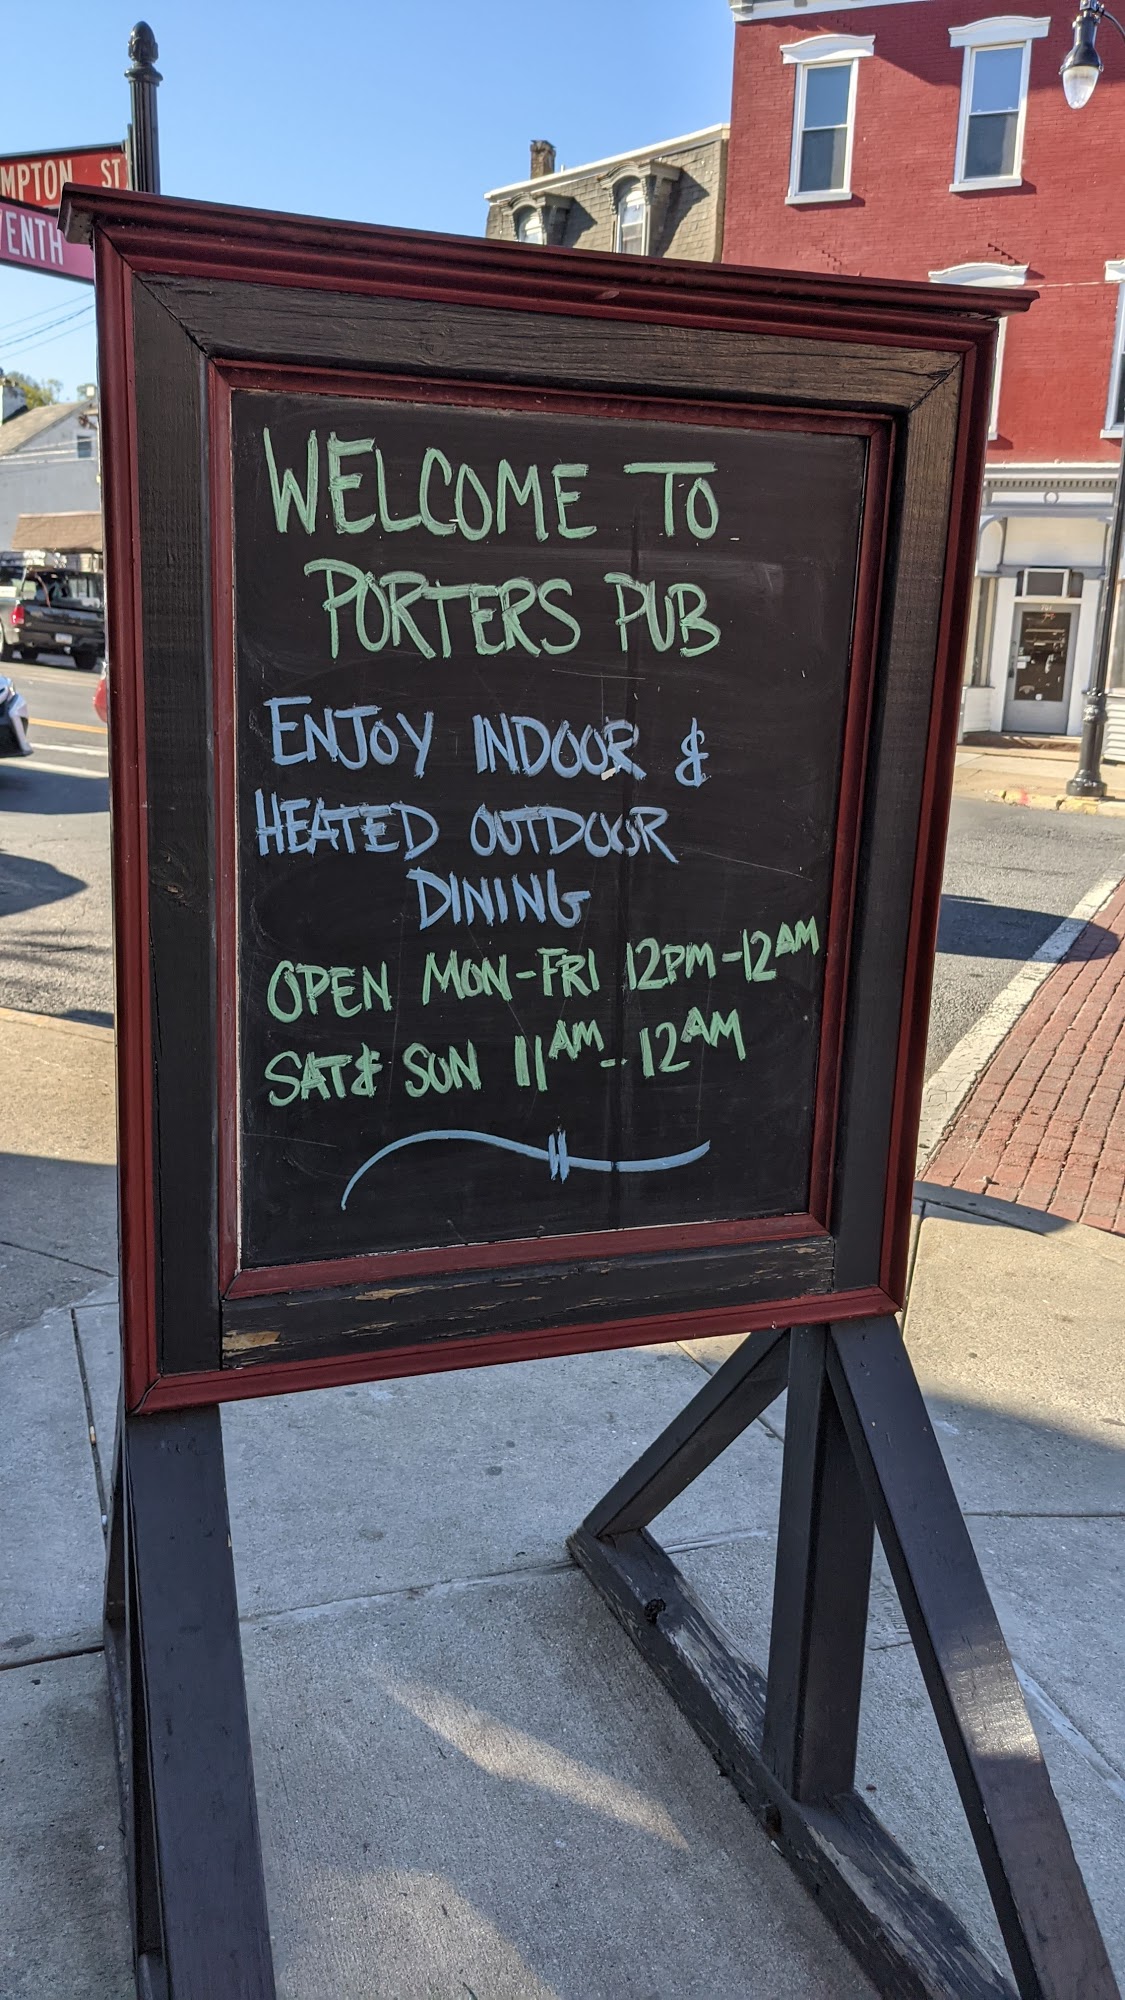 MPTON ST
VENTH
WELCOME TO
PORTERS PUB
ENJOY INDOOR &
HEATED OUTDOOR
DINING
OPEN MON-FRI 12PM-12AM
SAT& SUN 11AM-12AM